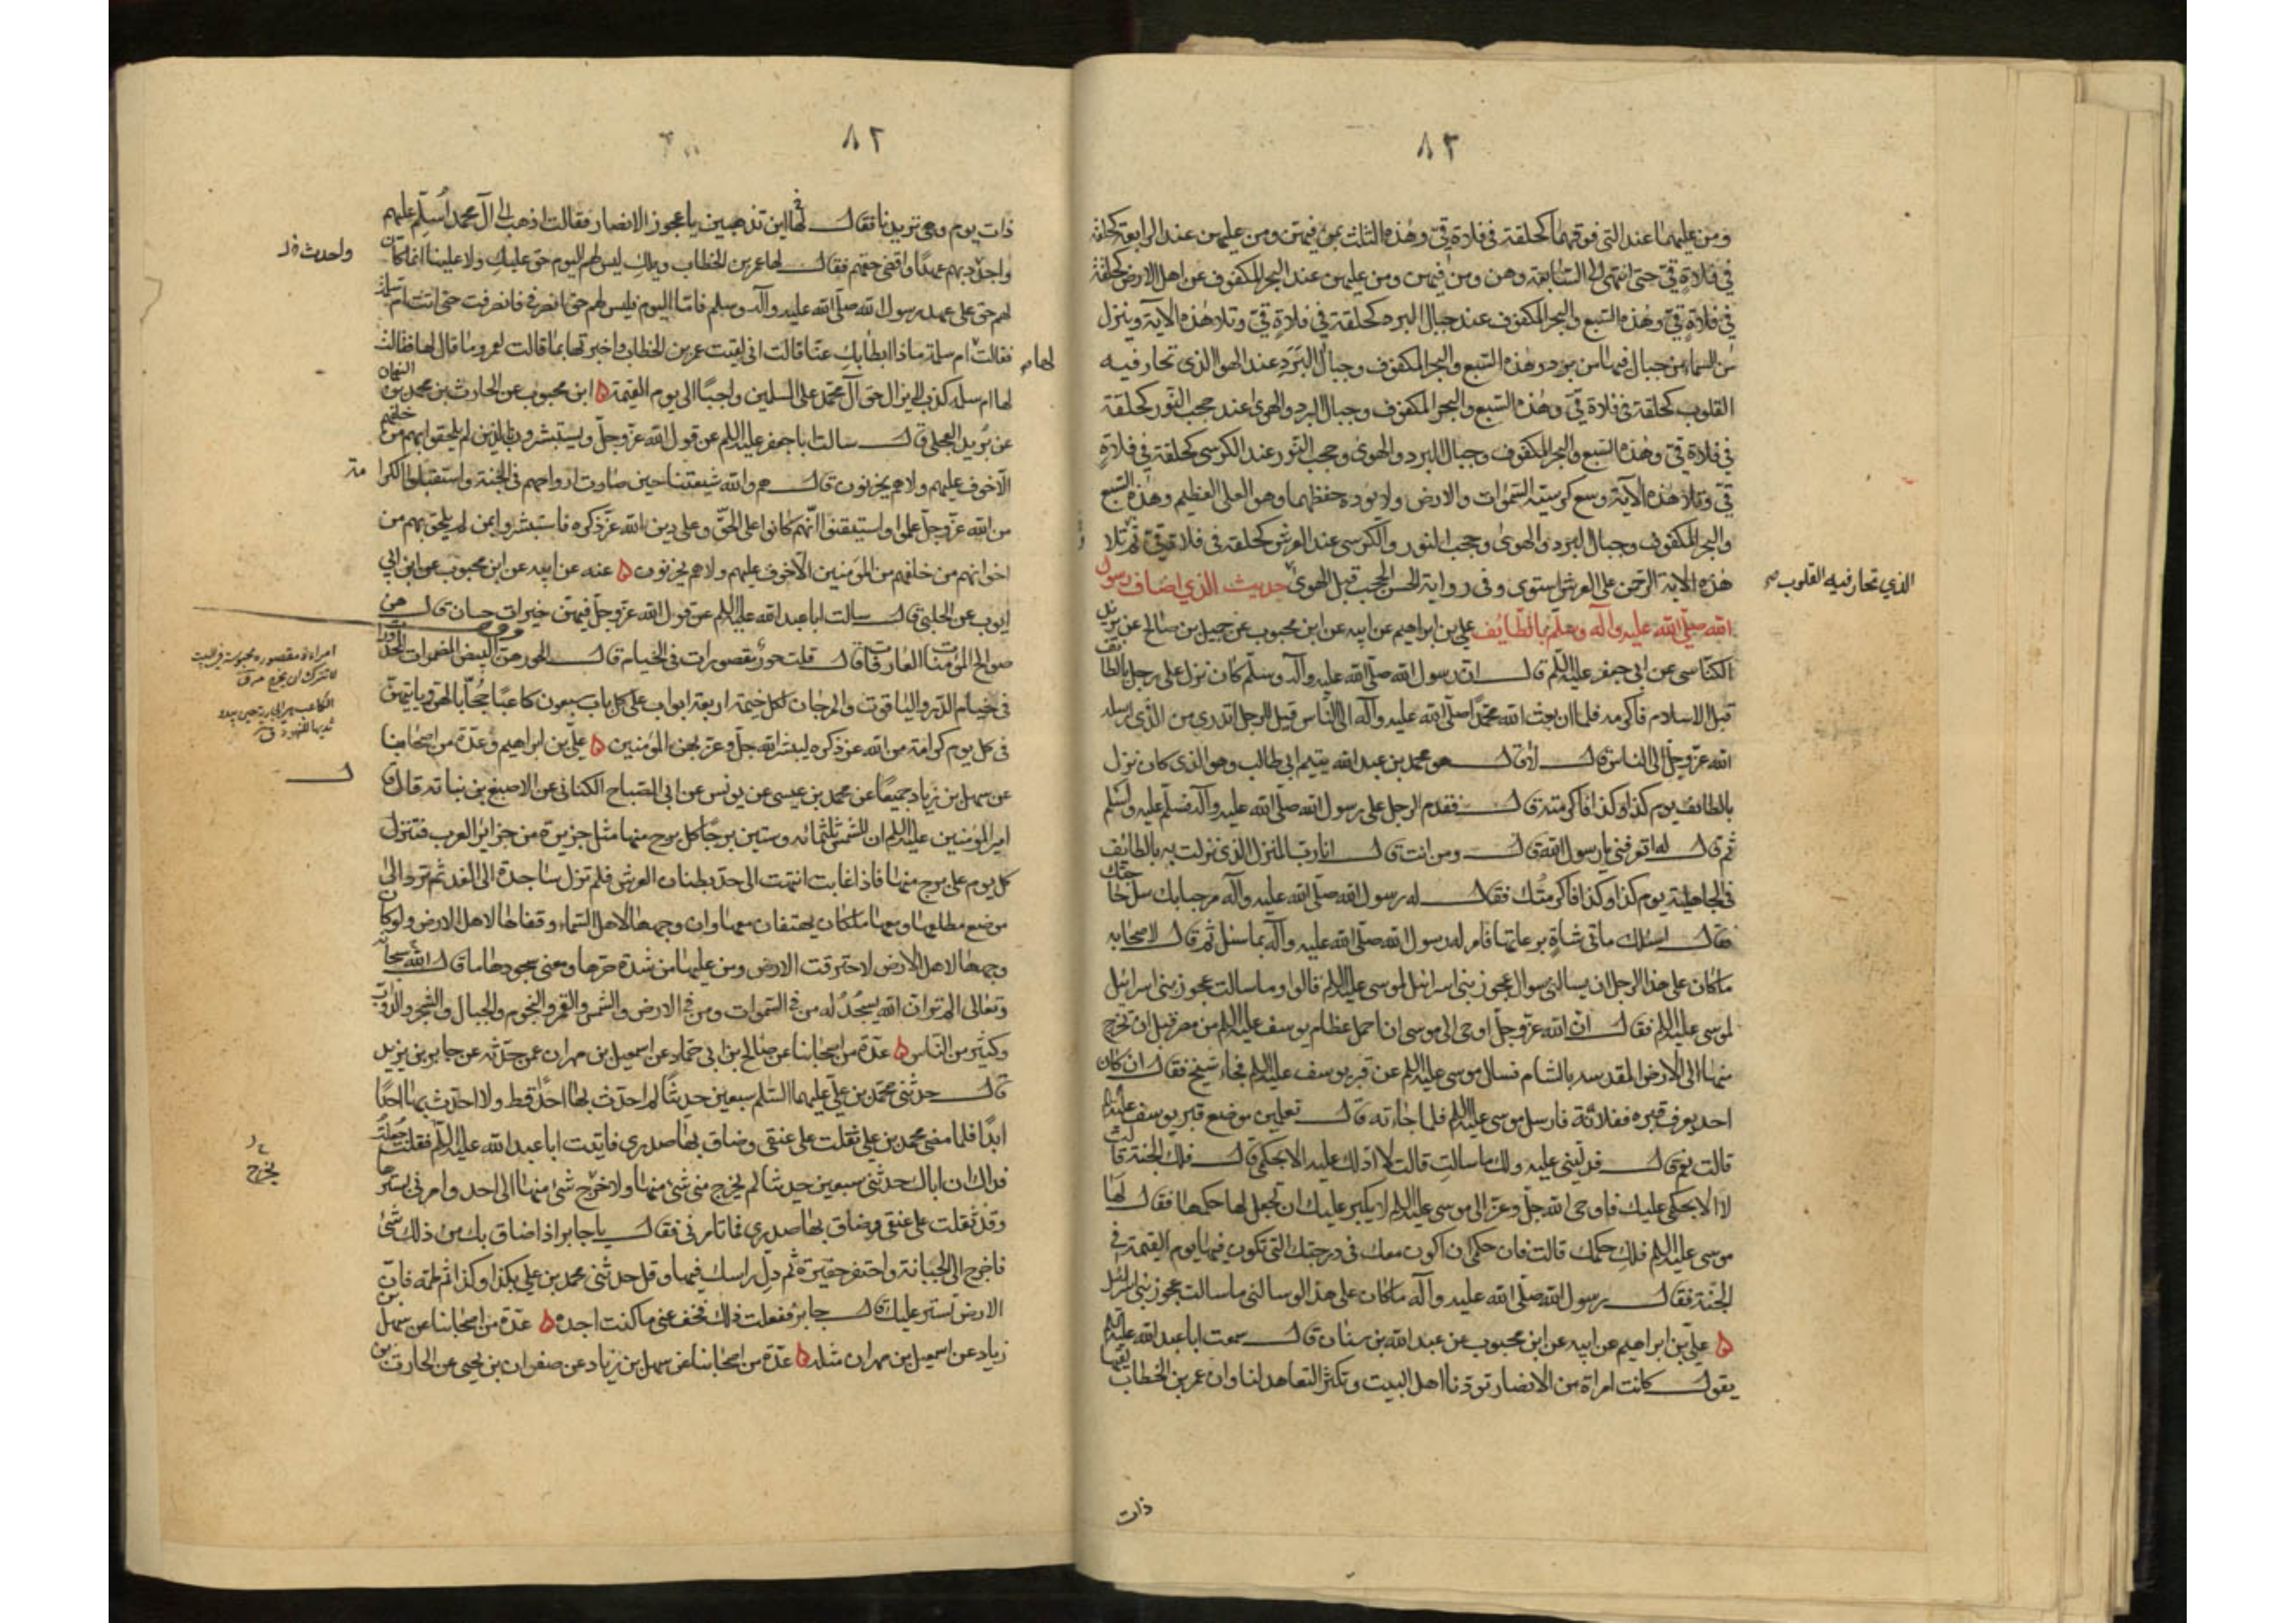 ٨٣
ومن عليهما عند التي فوقهما كحلقة في فلاة قي وهذه الثلث بمن فيهن ومن عليهن عند الرابعة كحلقة
في فلاة قي حتى انتهى الى السابعة وهن ومن فيهن ومن عليهن عند البحر المكفوف عن اهل الارض كحلقة
في فلاة قي وهذه السبع والبحر المكفوف عند جبال البرد كحلقة في فلاة قي وتلا هذه الآية وينزل
من السماء من جبال فيها من برد وهذه السبع والبحر المكفوف وجبال البَرَد عند الهوا الذى تحار فيه
القلوب كحلقة في فلاة قي وهذه السبع والبحر المكفوف وجبال البرد والهوى عند حجب النور كحلقة
في فلاة قي وهذه السبع والبحر المكفوف وجبال البرد والهوى وحجب النور عند الكرسى كحلقة في فلاة
قي وتلا هذه الآية وسع كرسيه السموات والارض ولا يوده حفظهما وهو العلى العظيم وهذه السبع
والبحر المكفوف وجبال البرد والهوى وحجب النور والكرسى عند العرش كحلقة في فلاة قي ثم تلا
هذه الآية الرحمن على العرش استوى وفى رواية الحسن الحجب قبل الهوى حديث الذي اضاف رسول
الذي تحار فيه القلوب
الله صلى الله عليه وآله وسلم بالطائف على بن ابراهيم عن ابيه عن ابن محبوب عن جميل بن صالح عن يزيد
الكناسى عن ابى جعفر عليه السلم قال ان رسول الله صلى الله عليه وآله وسلم كان نزل على رجل بالطائف
قبل الاسلام فاكرمه فلما ان بعث الله محمدا صلى الله عليه وآله الى الناس قيل للرجل اتدرى من الذى ارسله
الله عز وجل الى الناس قال لا قال هو محمد بن عبد الله يتيم ابى طالب وهو الذى كان نزل
بالطائف يوم كذا وكذا فاكرمته قال فقدم الرجل على رسول الله صلى الله عليه وآله فسلم عليه واسلم
ثم قال له اتعرفنى يا رسول الله قال ومن انت قال انا رب المنزل الذى نزلت به بالطائف
فى الجاهلية يوم كذا وكذا فاكرمتك فقال له رسول الله صلى الله عليه وآله مرحبا بك سل حاجتك
فقال اسئلك مأتى شاة برعاتها فامر له رسول الله صلى الله عليه وآله بما سئل ثم قال لاصحابه
ما كان على هذا الرجل ان يسالنى سوال عجوز بنى اسرائيل لموسى عليه السلم قالوا وما سالت عجوز بنى اسرائيل
لموسى عليه السلم فقال ان الله عز وجل اوحى الى موسى ان احمل عظام يوسف عليه السلم من مصر قبل ان تخرج
منها الى الارض المقدسه بالشام فسال موسى عليه السلم عن قبر يوسف عليه السلم فجاء شيخ فقال ان كان
احد يعرف قبره ففلانة فارسل موسى عليه السلم فلما جاءته قال تعلمين موضع قبر يوسف عليه السلم
قالت نعم قال فدلينى عليه ولك ما سالت قالت لا ادلك عليه الا بحكمى قال فلك الجنة قالت
لا الا بحكمى عليك فاوحى الله جل وعز الى موسى عليه السلم لا يكبر عليك ان تجعل لها حكمها فقال لها
موسى عليه السلم فلك حكمك قالت فان حكمى ان اكون معك فى درجتك التى تكون فيها يوم القيمة في
الجنة فقال رسول الله صلى الله عليه وآله ما كان على هذا لو سالنى ما سالت عجوز بنى اسرائيل
ه على بن ابراهيم عن ابيه عن ابن محبوب عن عبد الله بن سنان قال سمعت ابا عبد الله عليه السلم
يقول كانت امراة من الانصار تودنا اهل البيت وتكثر التعاهد لنا وان عمر بن الخطاب لقيها
ذات
٨٢
ذات يوم وهى تريدنا فقال لها اين تذهبين يا عجوز الانصار فقالت اذهب الى آل محمد اُسلم عليهم
واجدد بهم عهدًا واقضى حقهم فقال لها عمر بن الخطاب ويلك ليس لهم اليوم حق عليك ولا علينا انما كان
واحدث
لهم حق على عهد رسول الله صلى الله عليه وآله وسلم فاما اليوم فليس لهم حق فانصرفى فانصرفت حتى اتت ام سلمة
فقالت ام سلمة ماذا ابطا بك عنا قالت انى لقيت عمر بن الخطاب واخبرتها بما قالت لعمر وما قال لها فقالت
لها
لها ام سلمه كذب لا يزال حق آل محمد على المسلمين واجبًا الى يوم القيمة ه ابن محبوب عن الحارث بن محمد بن النعمان
عن بُريد العجلى قال سالت ابا جعفر عليه السلم عن قول الله عز وجل ويستبشرون بالذين لم يلحقوا بهم من خلفهم
الّا خوف عليهم ولا هم يحزنون قال هم والله شيعتنا حين صارت ارواحهم فى الجنة واستقبلوا الكرا مة
من الله عز وجل علموا واستيقنوا انهم كانوا على الحق وعلى دين الله عز ذكره فاستبشروا بمن لم يلحق بهم من
اخوانهم من خلفهم من المؤمنين الّا خوف عليهم ولا هم يحزنون ه عنه عن ابيه عن ابن محبوب عن ابى
ايوب عن الحلبى قال سالت ابا عبد الله عليه السلم عن قول الله عز وجل فيهن خيرات حسان قال هن
صوالح المؤمنات العارفات قال قلت حور مقصورات فى الخيام قال الحور هن البيض المضمومات المخدرات
امراءة مقصورة محبوسة فى البيت
لا تترك ان تخرج
فى خيام الدر والياقوت والمرجان لكل خيمة اربعة ابواب على كل باب سبعون كاعبًا حُجّابا لهن وياتيهن
الكاعب هي الجارية حين يبدو
ثديها للنهود
فى كل يوم كرامة من الله عز ذكره ليبشر الله جل وعز بهن المؤمنين ه على بن ابراهيم وعدة من اصحابنا
عن سهل بن زياد جميعًا عن محمد بن عيسى عن يونس عن ابى الصباح الكنانى عن الاصبغ بن نباته قال قال
امير المؤمنين عليه السلم ان للشمس ثلثمائه وستين برجًا كل برج منها مثل جزيرة من جزائر العرب فتنزل
كل يوم على برج منها فاذا غابت انتهت الى حد بطنان العرش فلم تزل ساجدة الى الغد ثم ترد الى
موضع مطلعها ومعها ملكان يهتفان معها وان وجهها لاهل السماء وقفاها لاهل الارض ولو كان
وجهها لاهل الارض لاحترقت الارض ومن عليها من شدة حرها ومعنى سجودها ما قال الله سبحانه
وتعالى الم تر ان الله يسجُدُ له من فى السموات ومن فى الارض والشمس والقمر والنجوم والجبال والشجر والدواب
وكثير من الناس ه عدة من اصحابنا عن صالح بن ابى حماد عن اسمعيل بن مهران عمن حدثه عن جابر بن يزيد
قال حدثنى محمد بن على عليهما السلم سبعين حديثًا لم احدث بها احدًا قط ولا احدث بها احدًا
ابدًا فلما مضى محمد بن على ثقلت على عنقى وضاق بها صدرى فاتيت ابا عبد الله عليه السلم فقلت جعلتُ
فداك ان اباك حدثنى سبعين حديثا لم يخرج منى شئ منها ولا خرج شئ منها الى احد وامرنى بسترها
يخرج
وقد ثقلت على عنقى وضاق بها صدرى فما تامرنى فقال يا جابر اذا ضاق بك من ذلك شئ
فاخرج الى الجبانة واحتفر حفيرة ثم دل راسك فيها وقل حدثنى محمد بن على بكذا وكذا ثم طمه فان
الارض تستر عليك قال جابر ففعلت ذلك فخف عنى ما كنت اجده ه عدة من اصحابنا عن سهل بن
زياد عن اسمعيل بن مهران مثله ه عدة من اصحابنا عن سهل بن زياد عن صفوان بن يحيى عن الحارث بن